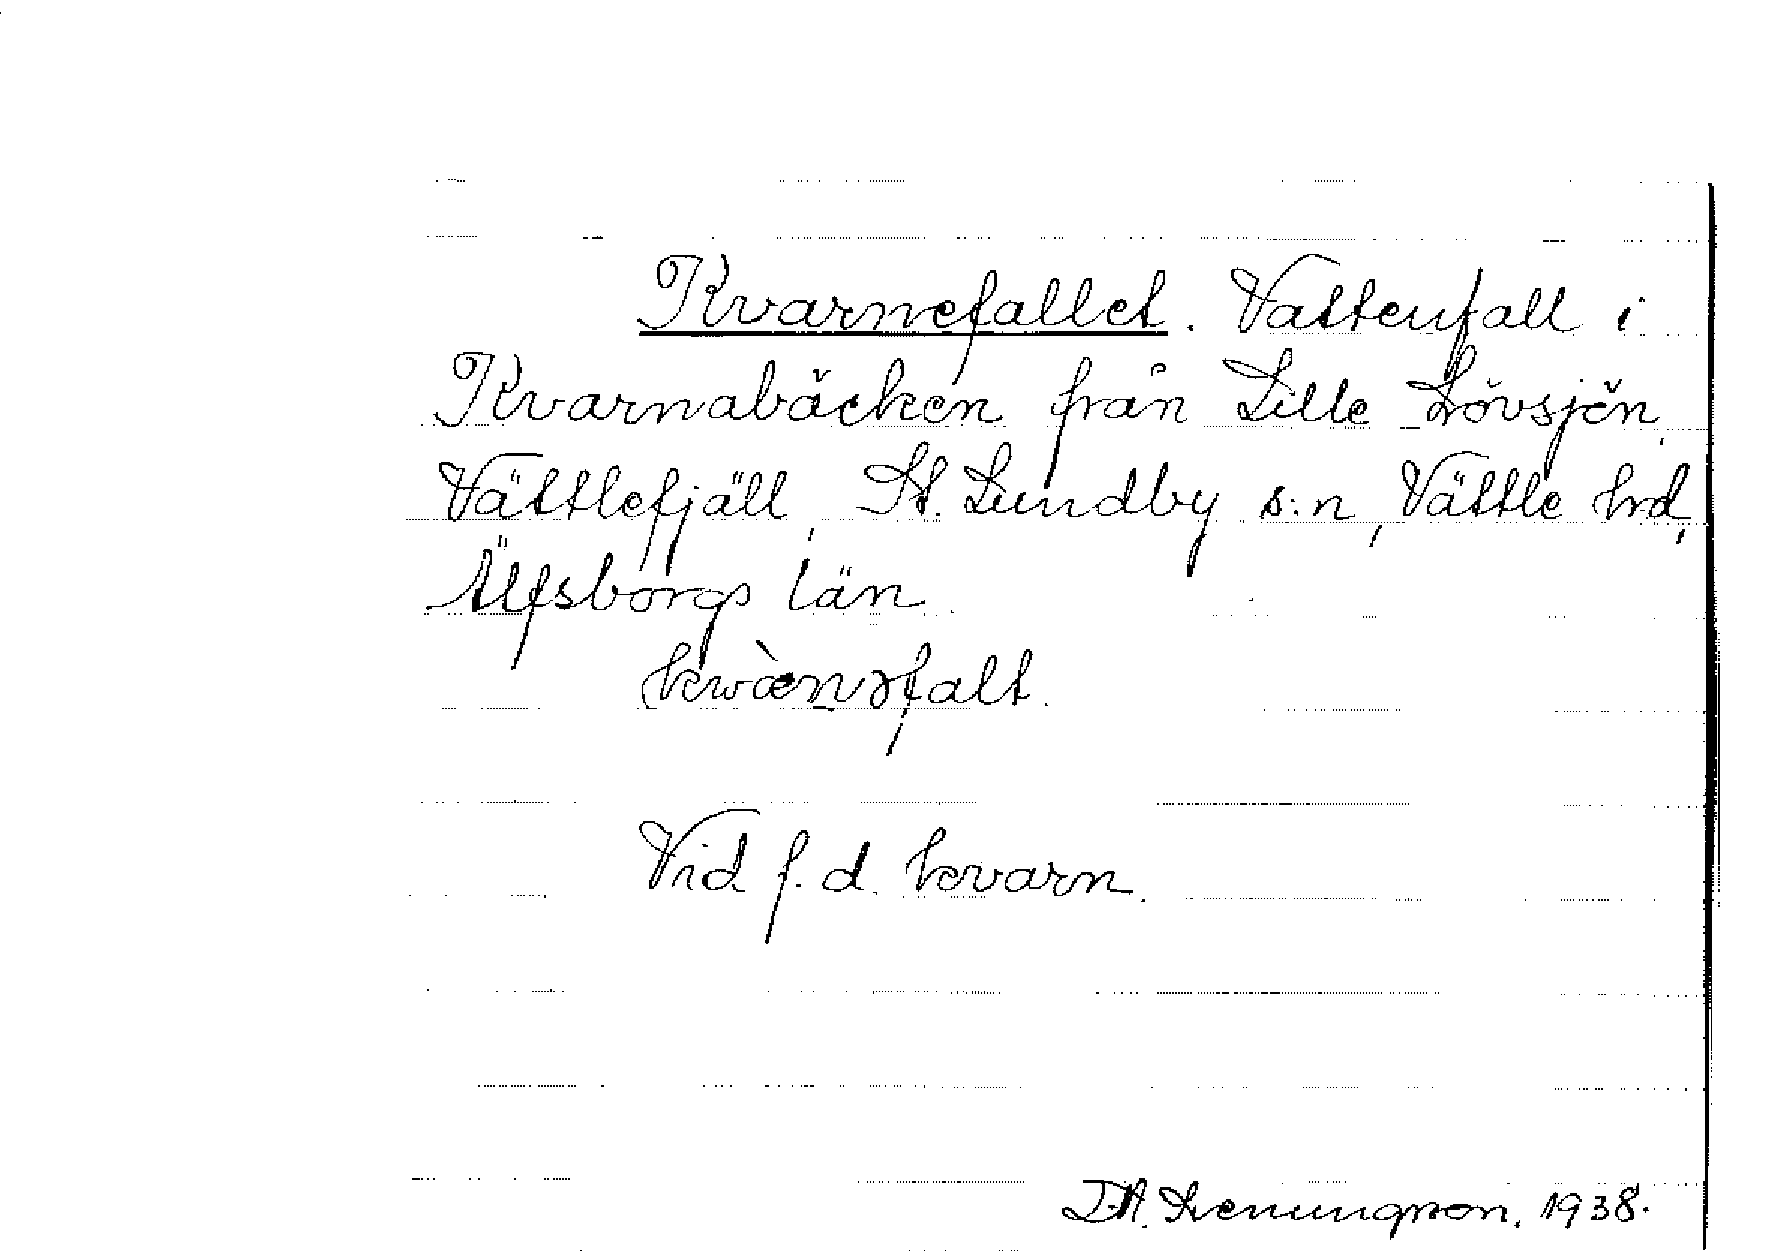 Kvarnefallet. Vattenfall i
Kvarnabäcken från Lille Lövsjön,
Vättlefjäll, St. Lundby s:n, Vättle hrd,
Älfsborgs län.
kwæ̀nəfalt.
Vid f. d. kvarn.
1938.